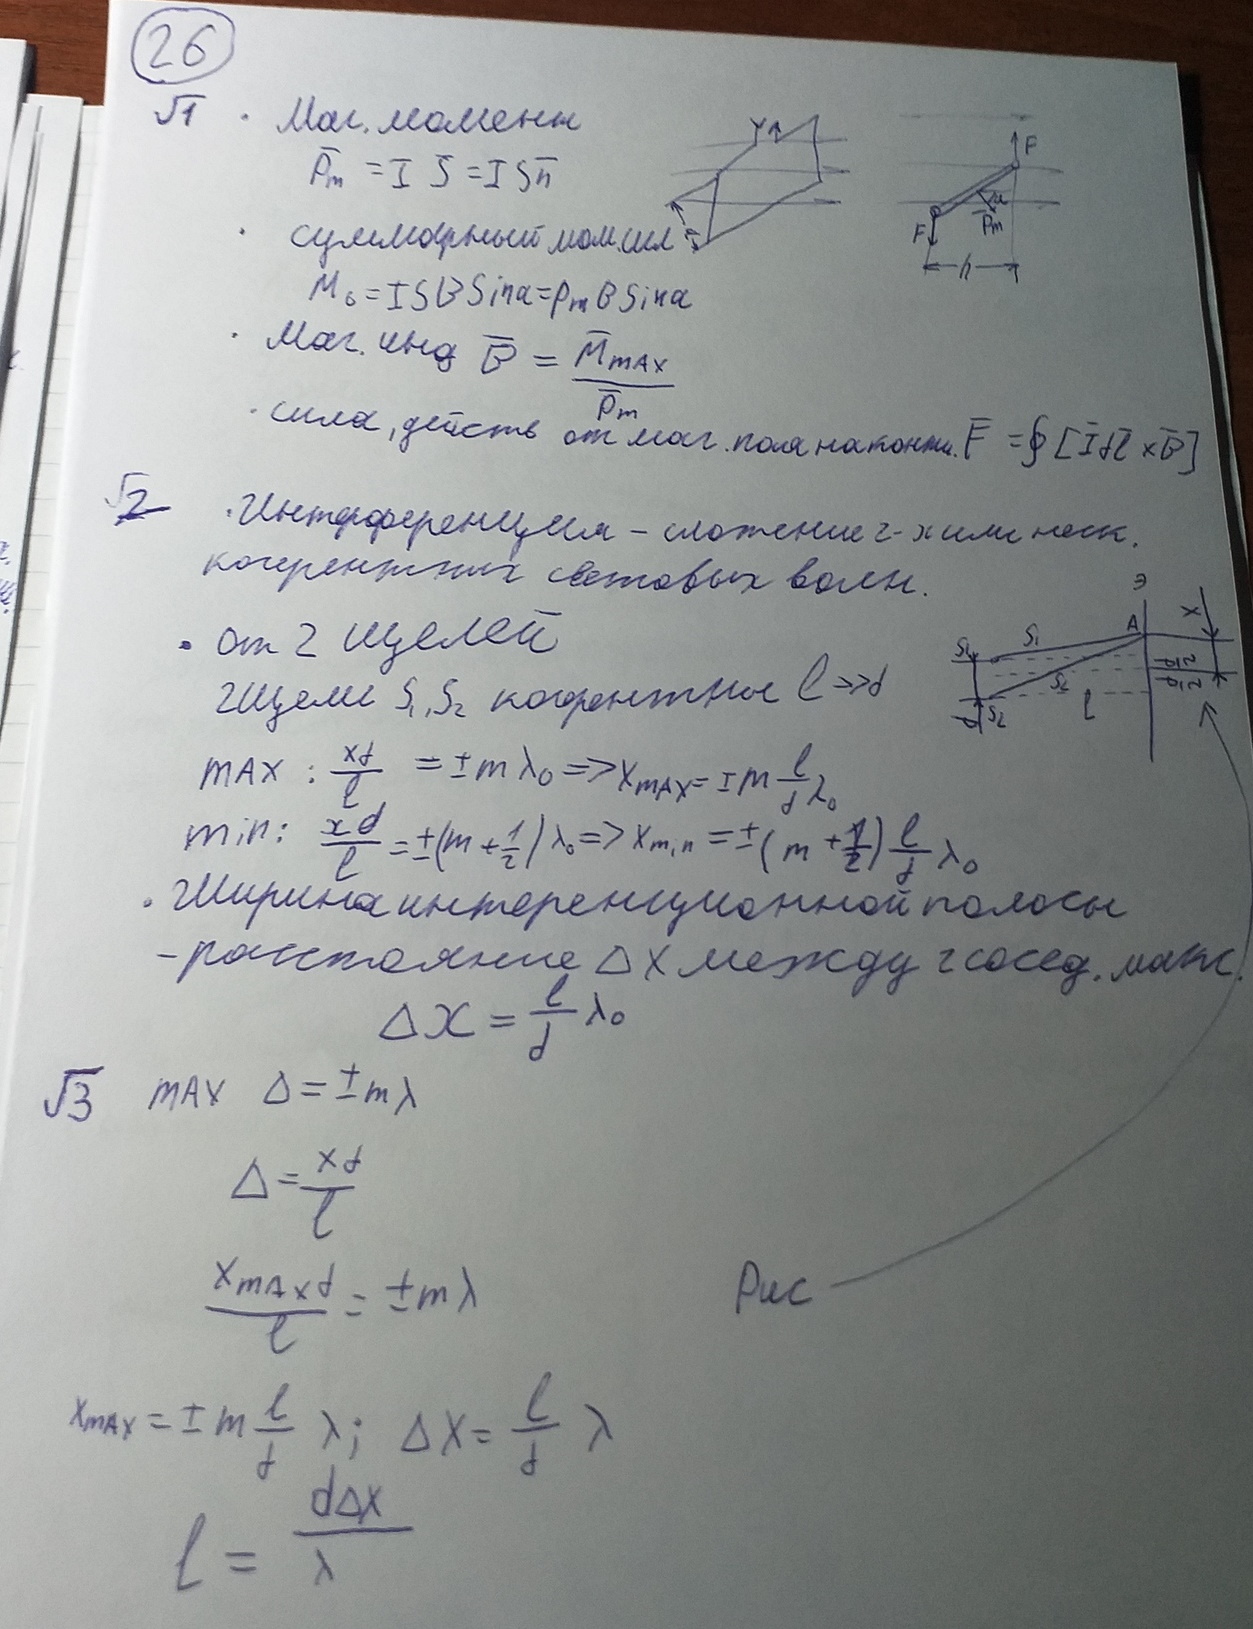 26
√1 · Маг. момент
P̄m = I S̄ = I S n̄
· суммарный мом. сил
M₀ = ISB Sinα = pm B Sinα
· Маг. инд B̄ = M̄max / P̄m
F
F
P̄m
h
· сила, действ от маг. поля на конт. F̄ = ∮ [I dl̄ × B̄]
√2 · Интерференция – сложение 2-х или неск.
когерентных световых волн.
· от 2 щелей
2 щели S₁, S₂ когерентные l >> d
Э
x
A
S₁ S₁
S₂ S₂
d
l
d/2
d/2
max : xd/l = ± m λ₀ => xmax = ± m l/d λ₀
min : xd/l = ± (m + 1/2) λ₀ => xmin = ± (m + 1/2) l/d λ₀
· Ширина интеренционной полосы
- расстояние Δx между 2 сосед. макс.
Δx = l/d λ₀
√3 max Δ = ± m λ
Δ = xd/l
xmax d/l = ± m λ
Рис
xmax = ± m l/d λ; Δx = l/d λ
l = dΔx/λ